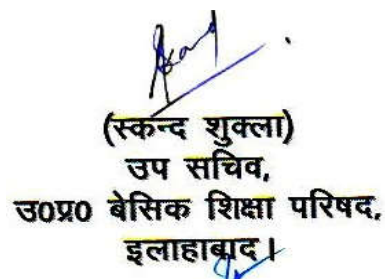 (स्कन्द शुक्ला)
उप सचिव,
उ०प्र० बेसिक शिक्षा परिषद,
इलाहाबाद।